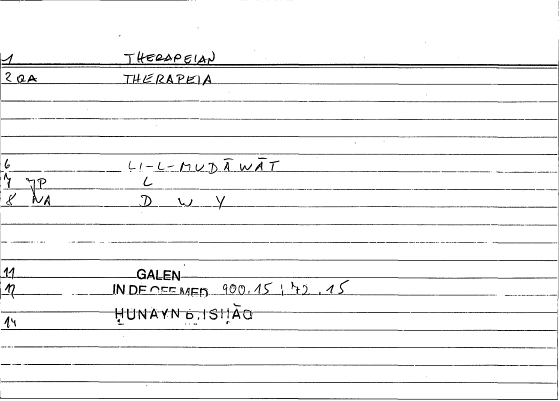 1 THERAPEIAN
2 QA THERAPEIA
6 LI-L-MUDĀWĀT
7 JP L
8 NA D W Y
11 GALEN
12 IN DE OFF.MED 900.15 | 72.15
14 ḤUNAYN b. ISḤĀQ